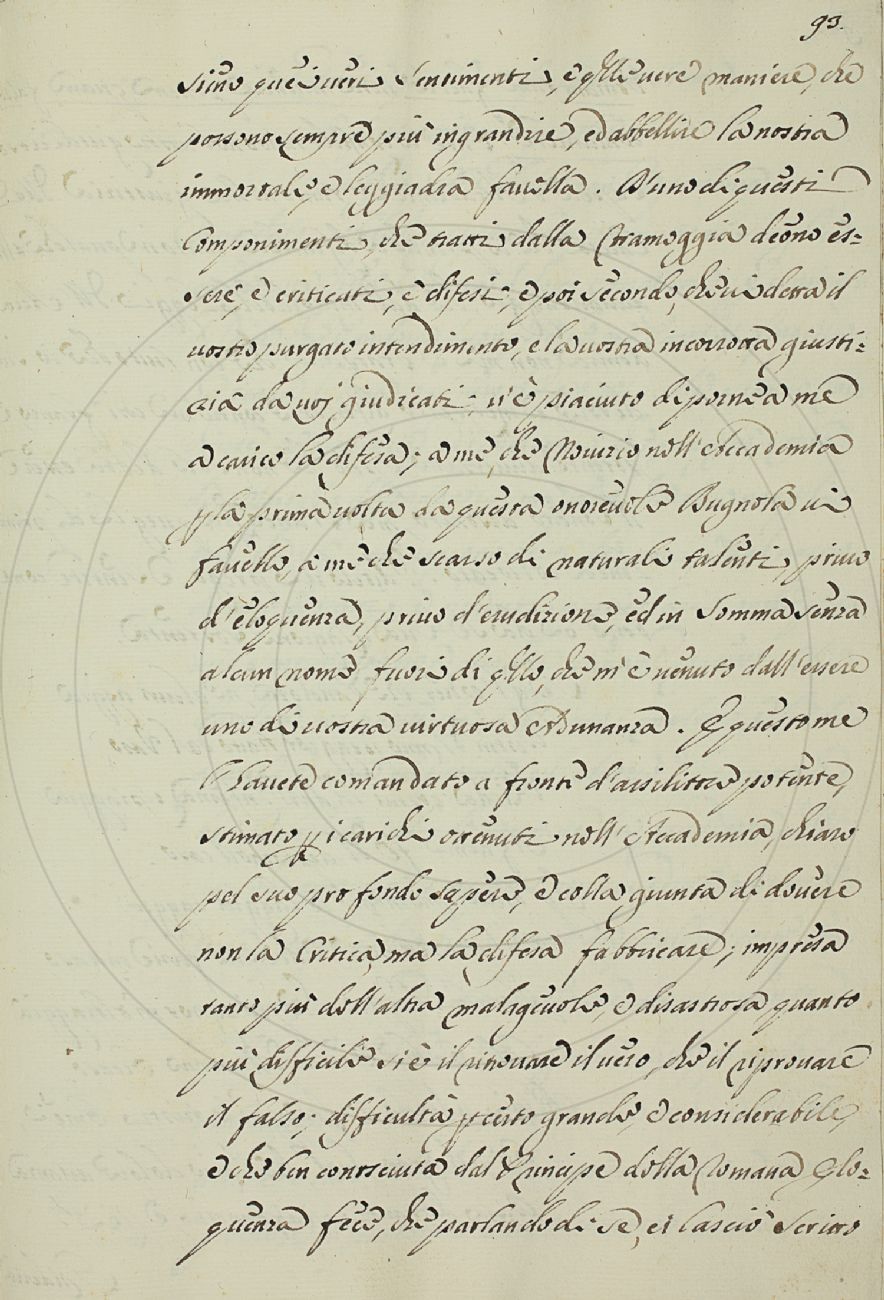 93.
sieno quei veri sentimenti, e qlle vere maniere, che
possono sempre più ingrandire, ed abbellire la nostra
immortale, e leggiadra favella. D'uno di questi
Componimenti, che tratti dalla Tramoggia deono es=
sere, e criticati, e difesi, e poi secondo, che vi detta il
vostro purgato intendimento, e la vostra incorrotta giusti=
zia da voj giudicati; v'è piaciuto di porne a me
a carico la difesa; a me, che Novizio nell'Accademia
p la prima volta da questa onorevole Bugnola vi
favello, a me che scarso di naturali talenti, privo
d'eloquenza, privo d'erudizione, ed in somma senza
alcun nome fuori di qllo, che m'è venuto dall'essere
uno di vostra virtuosa Adunanza. E questo me
l'havete comandato a fronte d'assilitore potente,
stimato p i carichi ottenuti nell'Accademia, chiaro
pel suo profondo sapere, e colla giunta di dovere
non la Critica, ma la difesa fabbricare; impresa
tanto più dell'altra malagevole, e disastrosa quanto
più difficile si è il ritrovare il vero, che il riprovare
il falso; difficultà p certo grande, e considerabile,
e che ben conosciuta dal Principe della Romana Elo=
quenza fece, che parlando di se, ei lasciò scritto